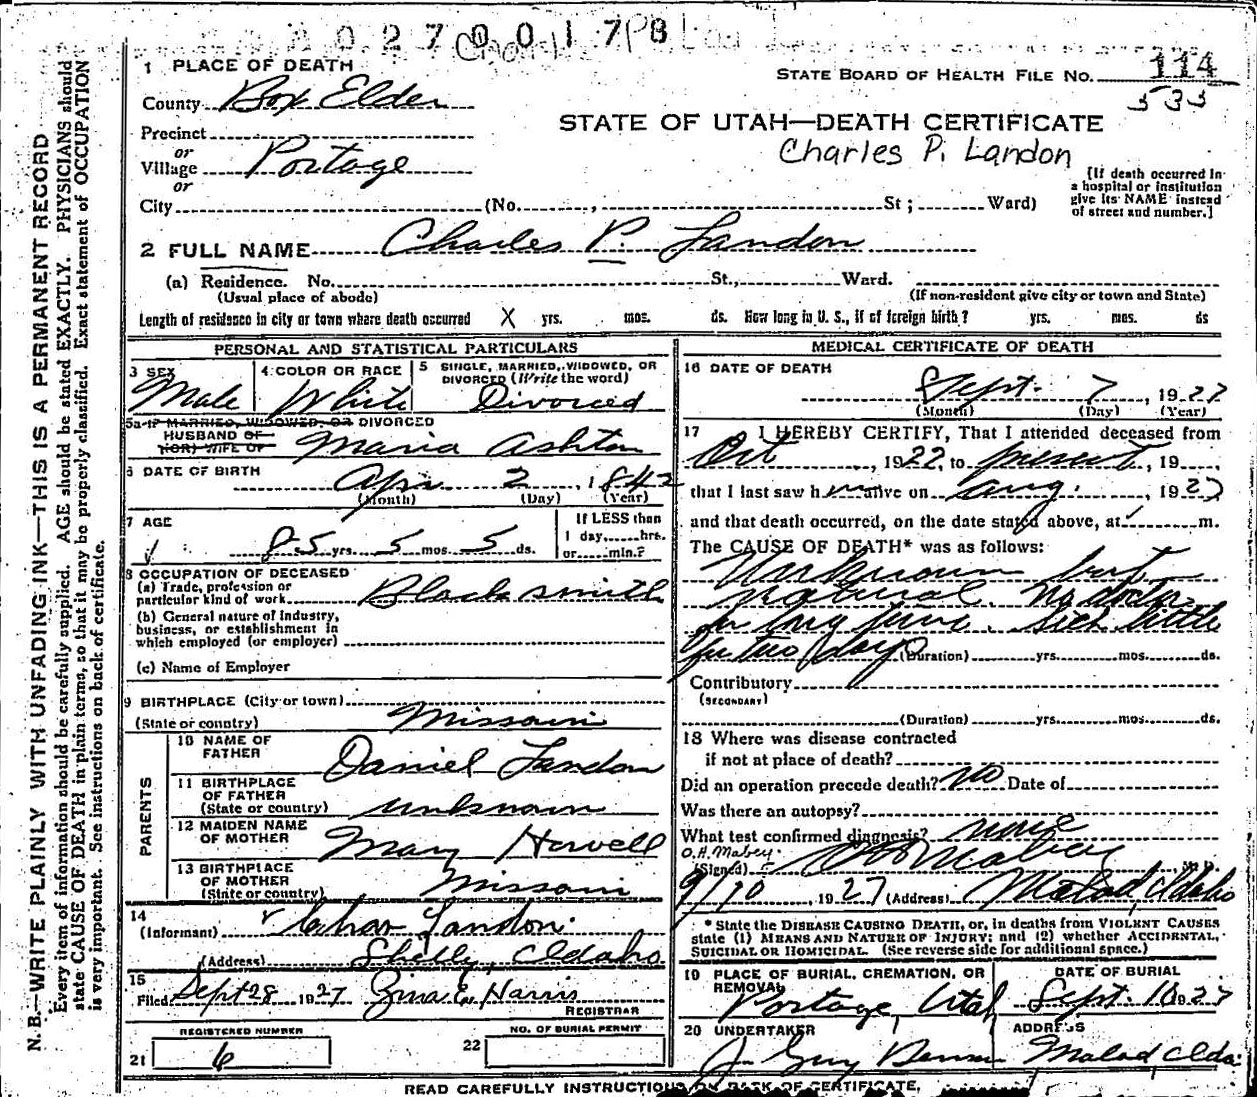 0 2 7 0 0 1 7 8
1 PLACE OF DEATH
STATE BOARD OF HEALTH FILE NO. 114
County Box Elder
533
STATE OF UTAH—DEATH CERTIFICATE
Precinct
Charles P. Landon
or
Village Portage
or
[If death occurred in
a hospital or institution
give its NAME instead
of street and number.]
City (No. , St ; Ward)
2 FULL NAME Charles P. Landon
(a) Residence. No. St., Ward.
(Usual place of abode) (If non-resident give city or town and State)
Length of residence in city or town where death occurred X yrs. mos. ds. How long in U. S., if of foreign birth? yrs. mos. ds
PERSONAL AND STATISTICAL PARTICULARS
3 SEX Male
4 COLOR OR RACE White
5 SINGLE, MARRIED, WIDOWED, OR
DIVORCED (Write the word)
Divorced
5a IF MARRIED, WIDOWED, OR DIVORCED
HUSBAND OF
(OR) WIFE OF Maria Ashton
6 DATE OF BIRTH
Apr 2, 1842
(Month) (Day) (Year)
7 AGE
85 yrs. 5 mos. 5 ds.
If LESS than
1 day, hrs.
or min.?
8 OCCUPATION OF DECEASED
(a) Trade, profession or
particular kind of work Blacksmith
(b) General nature of industry,
business, or establishment in
which employed (or employer)
(c) Name of Employer
9 BIRTHPLACE (City or town)
(State or country) Missouri
PARENTS
10 NAME OF
FATHER Daniel Landon
11 BIRTHPLACE
OF FATHER
(State or country) unknown
12 MAIDEN NAME
OF MOTHER Mary Howell
13 BIRTHPLACE
OF MOTHER
(State or country) Missouri
14
(Informant) Chas Landon
(Address) Shelly, Idaho
15
Filed Sept 28, 1927 Zina E. Harris
REGISTRAR
REGISTERED NUMBER
21 6
NO. OF BURIAL PERMIT
22
MEDICAL CERTIFICATE OF DEATH
16 DATE OF DEATH
Sept. 7, 1927
(Month) (Day) (Year)
17 I HEREBY CERTIFY, That I attended deceased from
Oct, 1922, to present, 19
that I last saw him alive on Aug. 1927
and that death occurred, on the date stated above, at m.
The CAUSE OF DEATH* was as follows:
Unknown but
natural. No doctor
for long time. Sick little
for two days (Duration) yrs. mos. ds.
Contributory
(SECONDARY)
(Duration) yrs. mos. ds.
18 Where was disease contracted
if not at place of death?
Did an operation precede death? No Date of
Was there an autopsy?
What test confirmed diagnosis? none
O.H. Mabey
(Signed) O H Mabey M. D.
9/10, 1927 (Address) Malad, Idaho
* State the DISEASE CAUSING DEATH, or, in deaths from VIOLENT CAUSES
state (1) MEANS AND NATURE OF INJURY; and (2) whether ACCIDENTAL,
SUICIDAL OR HOMICIDAL. (See reverse side for additional space.)
19 PLACE OF BURIAL, CREMATION, OR
REMOVAL
Portage, Utah
DATE OF BURIAL
Sept. 10 1927
20 UNDERTAKER
J. Guy Benson
ADDRESS
Malad, Ida.
READ CAREFULLY INSTRUCTIONS ON BACK OF CERTIFICATE.
N. B.—WRITE PLAINLY WITH UNFADING INK—THIS IS A PERMANENT RECORD
Every item of information should be carefully supplied. AGE should be stated EXACTLY. PHYSICIANS should
state CAUSE OF DEATH in plain terms, so that it may be properly classified. Exact statement of OCCUPATION
is very important. See instructions on back of certificate.